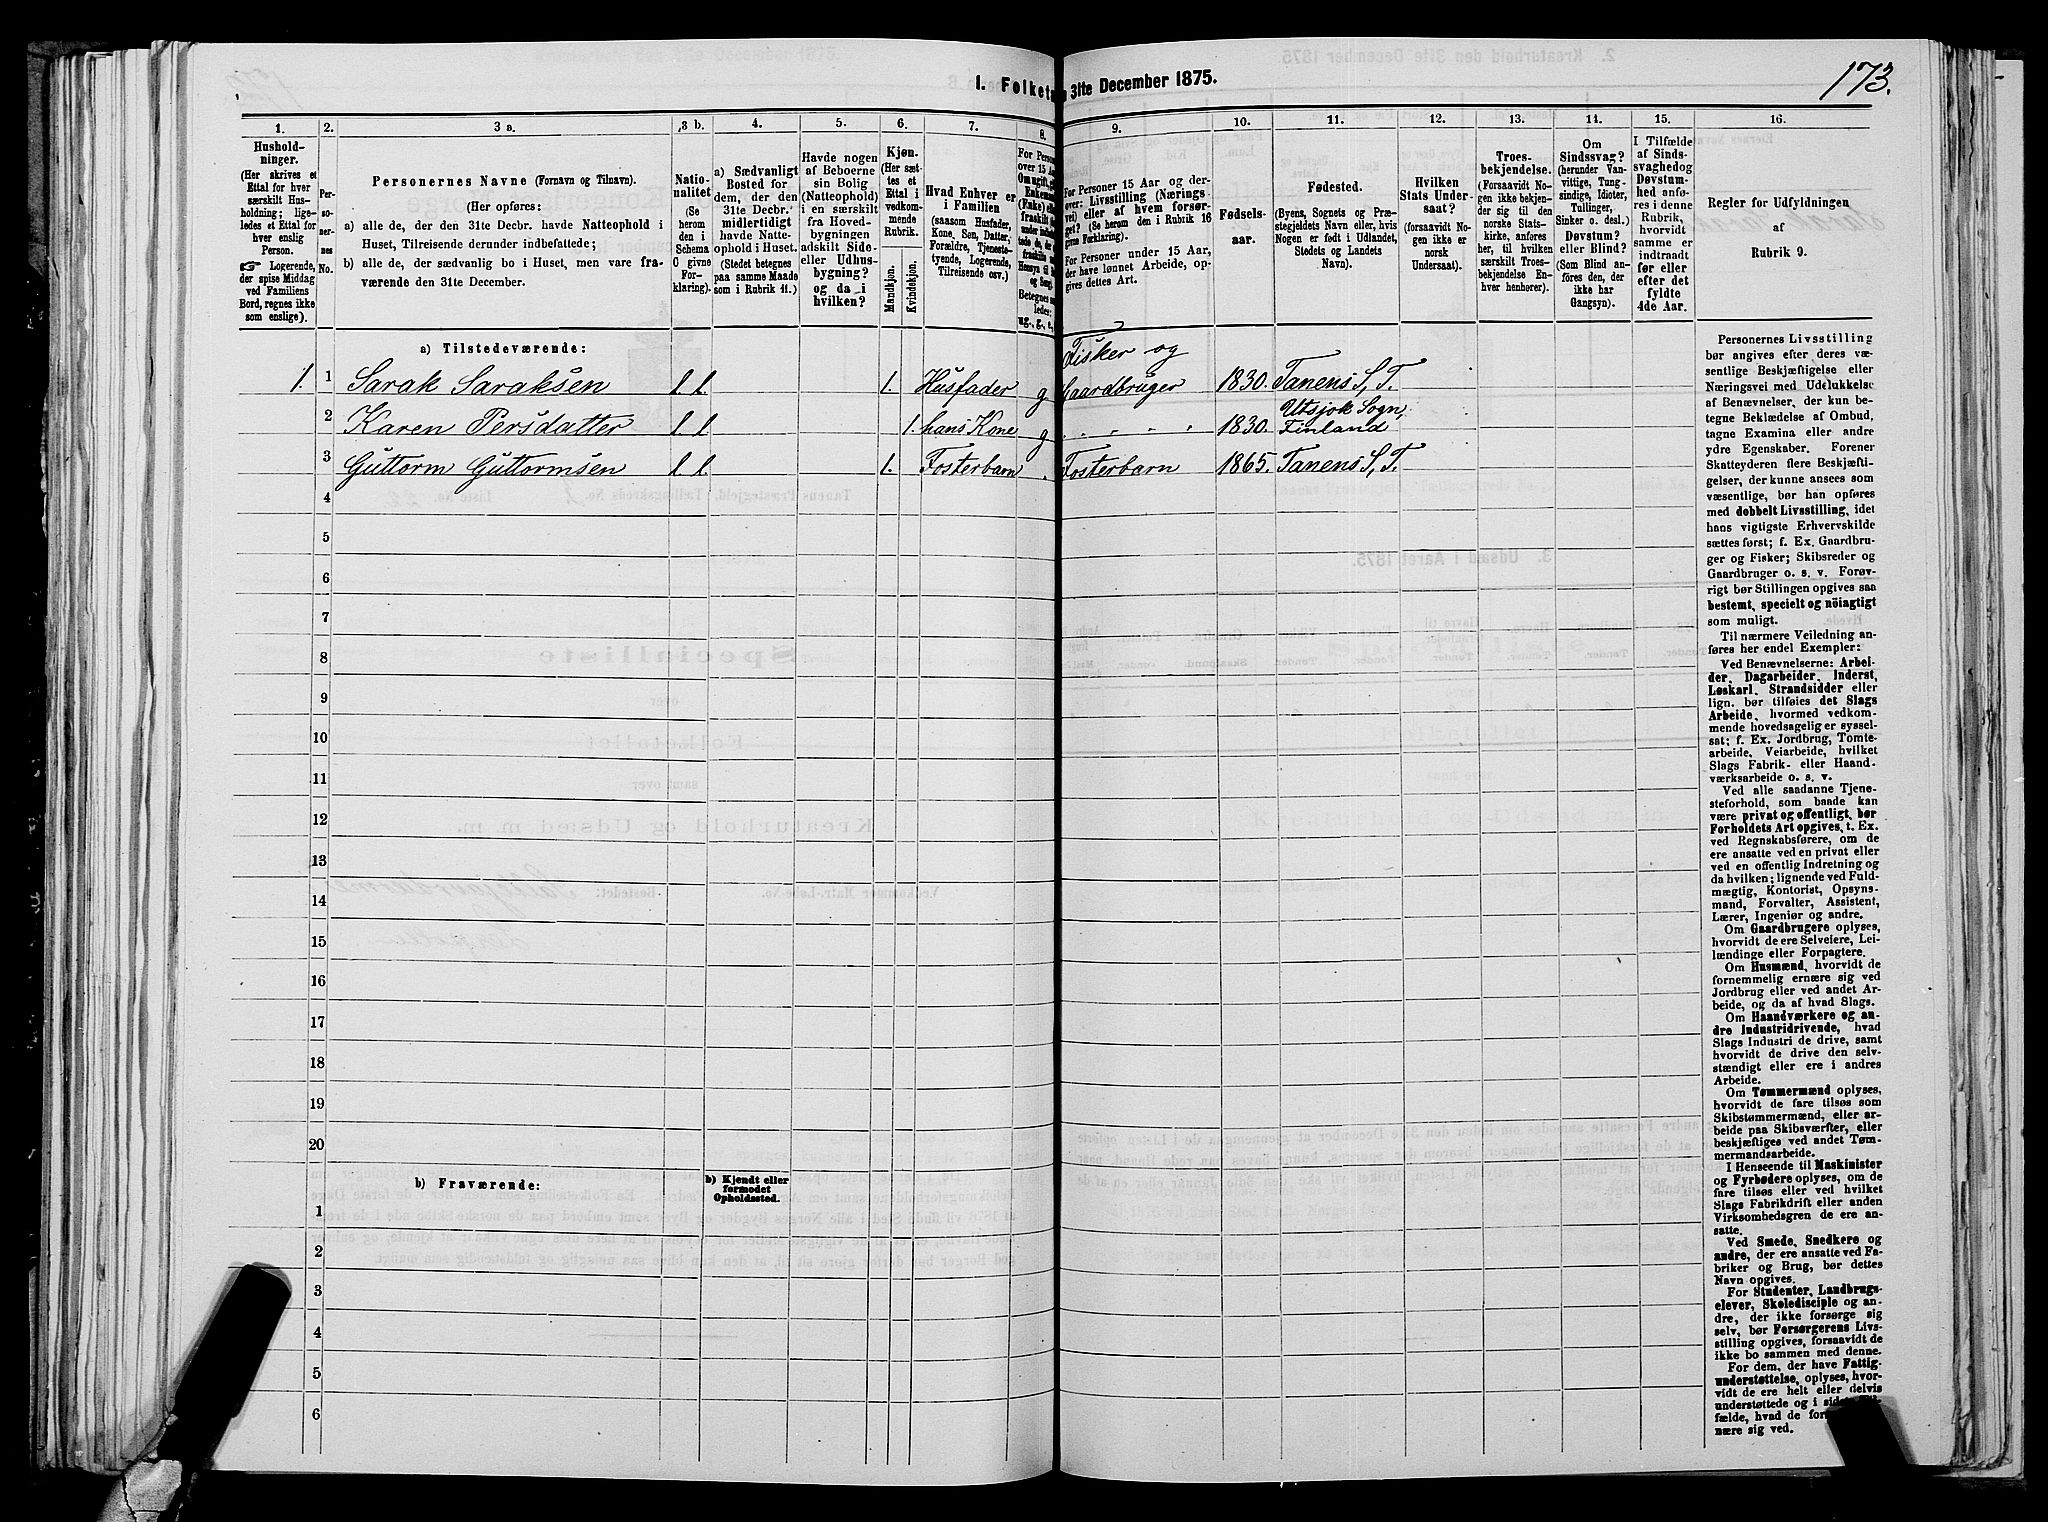 I. Folketa
31te December 1875.
173.
1.
2.
3 a.
3 b.
4.
5.
6.
7.
8.
9.
10.
11.
12.
13.
14.
15.
16.
Hushold-
ninger.
(Her skrives et
Ettal for hver
særskilt Hus-
holdning; lige-
ledes et Ettal
for hver
enslig
Person.
☞ Logerende,
der spise Middag
ved Familiens
Bord, regnes ikke
som enslige).
Per-
so-
ner-
nes
No.
Personernes Navne (Fornavn og Tilnavn).
(Her opføres:
a) alle de, der den 31te Decbr. havde Natteophold i
Huset, Tilreisende derunder indbefattede;
b) alle de, der sædvanlig bo i Huset, men vare fra-
værende den 31te December.
Natio-
nalitet
(Se
herom
den i
Schema
C givne
For-
klaring).
a) Sædvanligt
Bosted for
dem, der den
31te Decbr.
midlertidigt
havde Natte-
ophold i Huset.
(Stedet betegnes
paa samme Maade
som i Rubrik 11.)
Havde nogen
af Beboerne
sin Bolig
(Natteophold)
i en særskilt
fra Hoved-
bygningen
adskilt Side-
eller Udhus-
bygning?
og da i
hvilken?
Kjøn.
(Her sæt-
tes et
Ettal i
vedkom-
mende
Rubrik.
Mandkjøn.
Kvindekjøn.
Hvad Enhver er
i Familien
(saasom Husfader,
Kone, Søn, Datter,
Forældre, Tjeneste-
tyende, Logerende,
Tilreisende osv.)
For Personer 15 Aar og der-
over: Livsstilling (Nærings-
vei) eller af hvem forsør-
get? (Se herom den i Rubrik 16
givne Forklaring).
For Personer under 15 Aar,
der have lønnet Arbeide, op-
gives dettes Art.
Fødsels-
aar.
Fødested.
(Byens, Sognets og Præ-
stegjeldets Navn eller, hvis
Nogen er født i Udlandet,
Stedets og Landets
Navn).
Hvilken
Stats Under-
saat?
(forsaavidt No-
gen ikke er
norsk
Undersaat).
Troes-
bekjendelse.
(Forsaavidt No-
gen ikke bekjen-
der sig til den
norske Stats-
kirke, anføres
her, til hvilken
særskilt Troes-
bekjendelse En-
hver henhører).
Om
Sindssvag?
(herunder Van-
vittige, Tung-
sindige, Idioter,
Tullinger,
Sinker o. desl.)
Døvstum?
eller Blind?
(Som Blind an-
føres den, der
ikke har
Gangsyn).
I Tilfælde
af Sinds-
svaghed og
Døvstum-
hed anfø-
res i denne
Rubrik,
hvorvidt
samme er
indtraadt
før eller
efter det
fyldte
4de Aar.
Regler for Udfyldningen
af
Rubrik 9.
a) Tilstedeværende:
1. 1 Sarak Saraksen l. l. 1. Husfader g Fisker og
Gaardbruger 1830. Tanens S, T.
2 Karen Persdatter l l 1. hans Kone g " " " " 1830. Utsjok Sogn,
Finland
3 Guttorm Guttormsen l l. 1. Fosterbarn . Fosterbarn 1865. Tanens S, T.
4
5
6
7
8
9
10
11
12
13
14
15
16
17
18
19
20
b) Fraværende:
b) Kjendt eller
formodet
Opholdssted.
1
2
3
4
5
6
Personernes Livsstilling
bør angives efter deres væ-
sentlige Beskjæftigelse eller
Næringsvei med Udelukkelse
af Benævnelser, der kun be-
tegne Beklædelse af Ombud,
tagne Examina eller andre
ydre Egenskaber. Forener
Skatteyderen flere Beskjæfti-
gelser, der kunne ansees som
væsentlige, bør han opføres
med dobbelt Livsstilling, idet
hans vigtigste Erhvervskilde
sættes først; f. Ex. Gaardbru-
ger og Fisker; Skibsreder og
Gaardbruger o. s. v. Forøv-
rigt bør Stillingen opgives saa
bestemt, specielt og nöiagtigt
som muligt.
Til nærmere Veiledning an-
føres her endel Exempler:
Ved Benævnelserne: Arbei-
der, Dagarbeider, Inderst,
Løskarl, Strandsidder eller
lign. bør tilføies det Slags
Arbeide, hvormed vedkom-
mende hovedsagelig er syssel-
sat; f. Ex. Jordbrug, Tomte-
arbeide, Veiarbeide, hvilket
Slags Fabrik- eller Haand-
værksarbeide o. s. v.
Ved alle saadanne Tjene-
steforhold, som baade kan
være privat og offentligt, bør
Forholdets Art opgives, t. Ex.
ved Regnskabsførere, om de
ere ansatte ved en privat eller
ved en offentlig Indretning og
da hvilken; lignende ved Fuld-
mægtig, Kontorist, Opsyns-
mand, Forvalter, Assistent,
Lærer, Ingeniør og andre.
Om Gaardbrugere oplyses,
hvorvidt de ere Selveiere, Lei-
lændinge eller Forpagtere.
Om Husmænd, hvorvidt de
fornemmelig ernære sig ved
Jordbrug eller ved andet Ar-
beide, og da af hvad Slags.
Om Haandværkere og an-
dre Industridrivende, hvad
Slags Industri de drive, samt
hvorvidt de drive den selv-
stændigt eller ere i andres
Arbeide.
Om Tømmermænd oplyses,
hvorvidt de fare tilsøs som
Skibstømmermænd, eller ar-
beide paa Skibsværfter, eller
beskjæftiges ved andet Tøm-
mermandsarbeide.
I Henseende til Maskinister
og Fyrbødere oplyses, om de
fare tilsøs eller ved hvilket
Slags Fabrikdrift eller anden
Virksomhedsgren de ere an-
satte.
Ved Smede, Snedkere og
andre, der ere ansatte ved Fa-
briker og Brug, bør dettes
Navn opgives.
For Studenter, Landbrugs-
elever, Skoledisciple og an-
dre, der ikke forsørge sig
selv, bør Forsørgerens Livs-
stilling opgives, forsaavidt de
ikke bo sammen med denne.
For dem, der have Fattig-
understøttelse, oplyses, hvor-
vidt de ere helt eller delvis
understøttede og i
fælde, hvad de
nære sig ved.